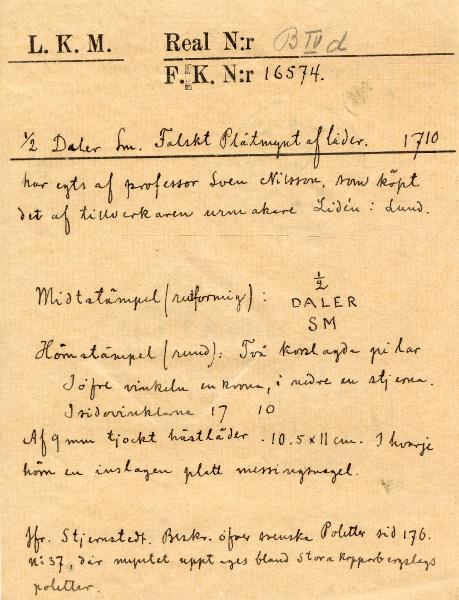 L. K. M. Real N:r B IV d
F. K. N:r 16574.
1/2 Daler Sm. Falskt Plåtmynt af läder. 1710
har egts af professor Sven Nilsson, som köpt
det af tillverkaren urmakare Lidén i Lund.
Midtstämpel (rutformig): 1/2
DALER
SM
Hörnstämpel (rund): Två korslagda pilar
I öfre vinkeln en krona, i nedre en stjerna.
I sidovinklarna 17 10
Af 9 mm tjockt hästläder. 10.5 x 11 cm. I hvarje
hörn en inslagen platt messingsnagel.
Jfr. Stjernstedt. Beskr. öfver svenska Poletter sid 176.
N:o 37, där myntet upptages bland Stora Kopparbergslags
poletter.